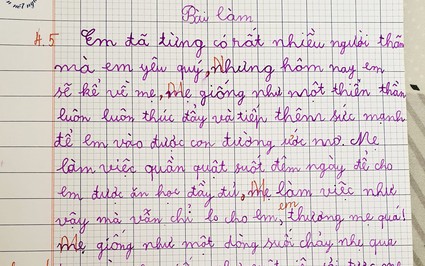 Bài làm
4.5 Em đã từng có rất nhiều người thân
mà em yêu quý, Nhưng hôm nay em
sẽ kể về mẹ, Mẹ giống như một thiên thần
luôn luôn thúc đẩy và tiếp thêm sức mạnh
để em vào được con đường ước mơ. Mẹ
làm việc quần quật suốt đêm ngày để cho
em được ăn học đầy đủ, Mẹ làm việc như
vậy mà vẫn chỉ lo cho em, em thương mẹ quá!
Mẹ giống như một dòng suối chảy nhẹ qua